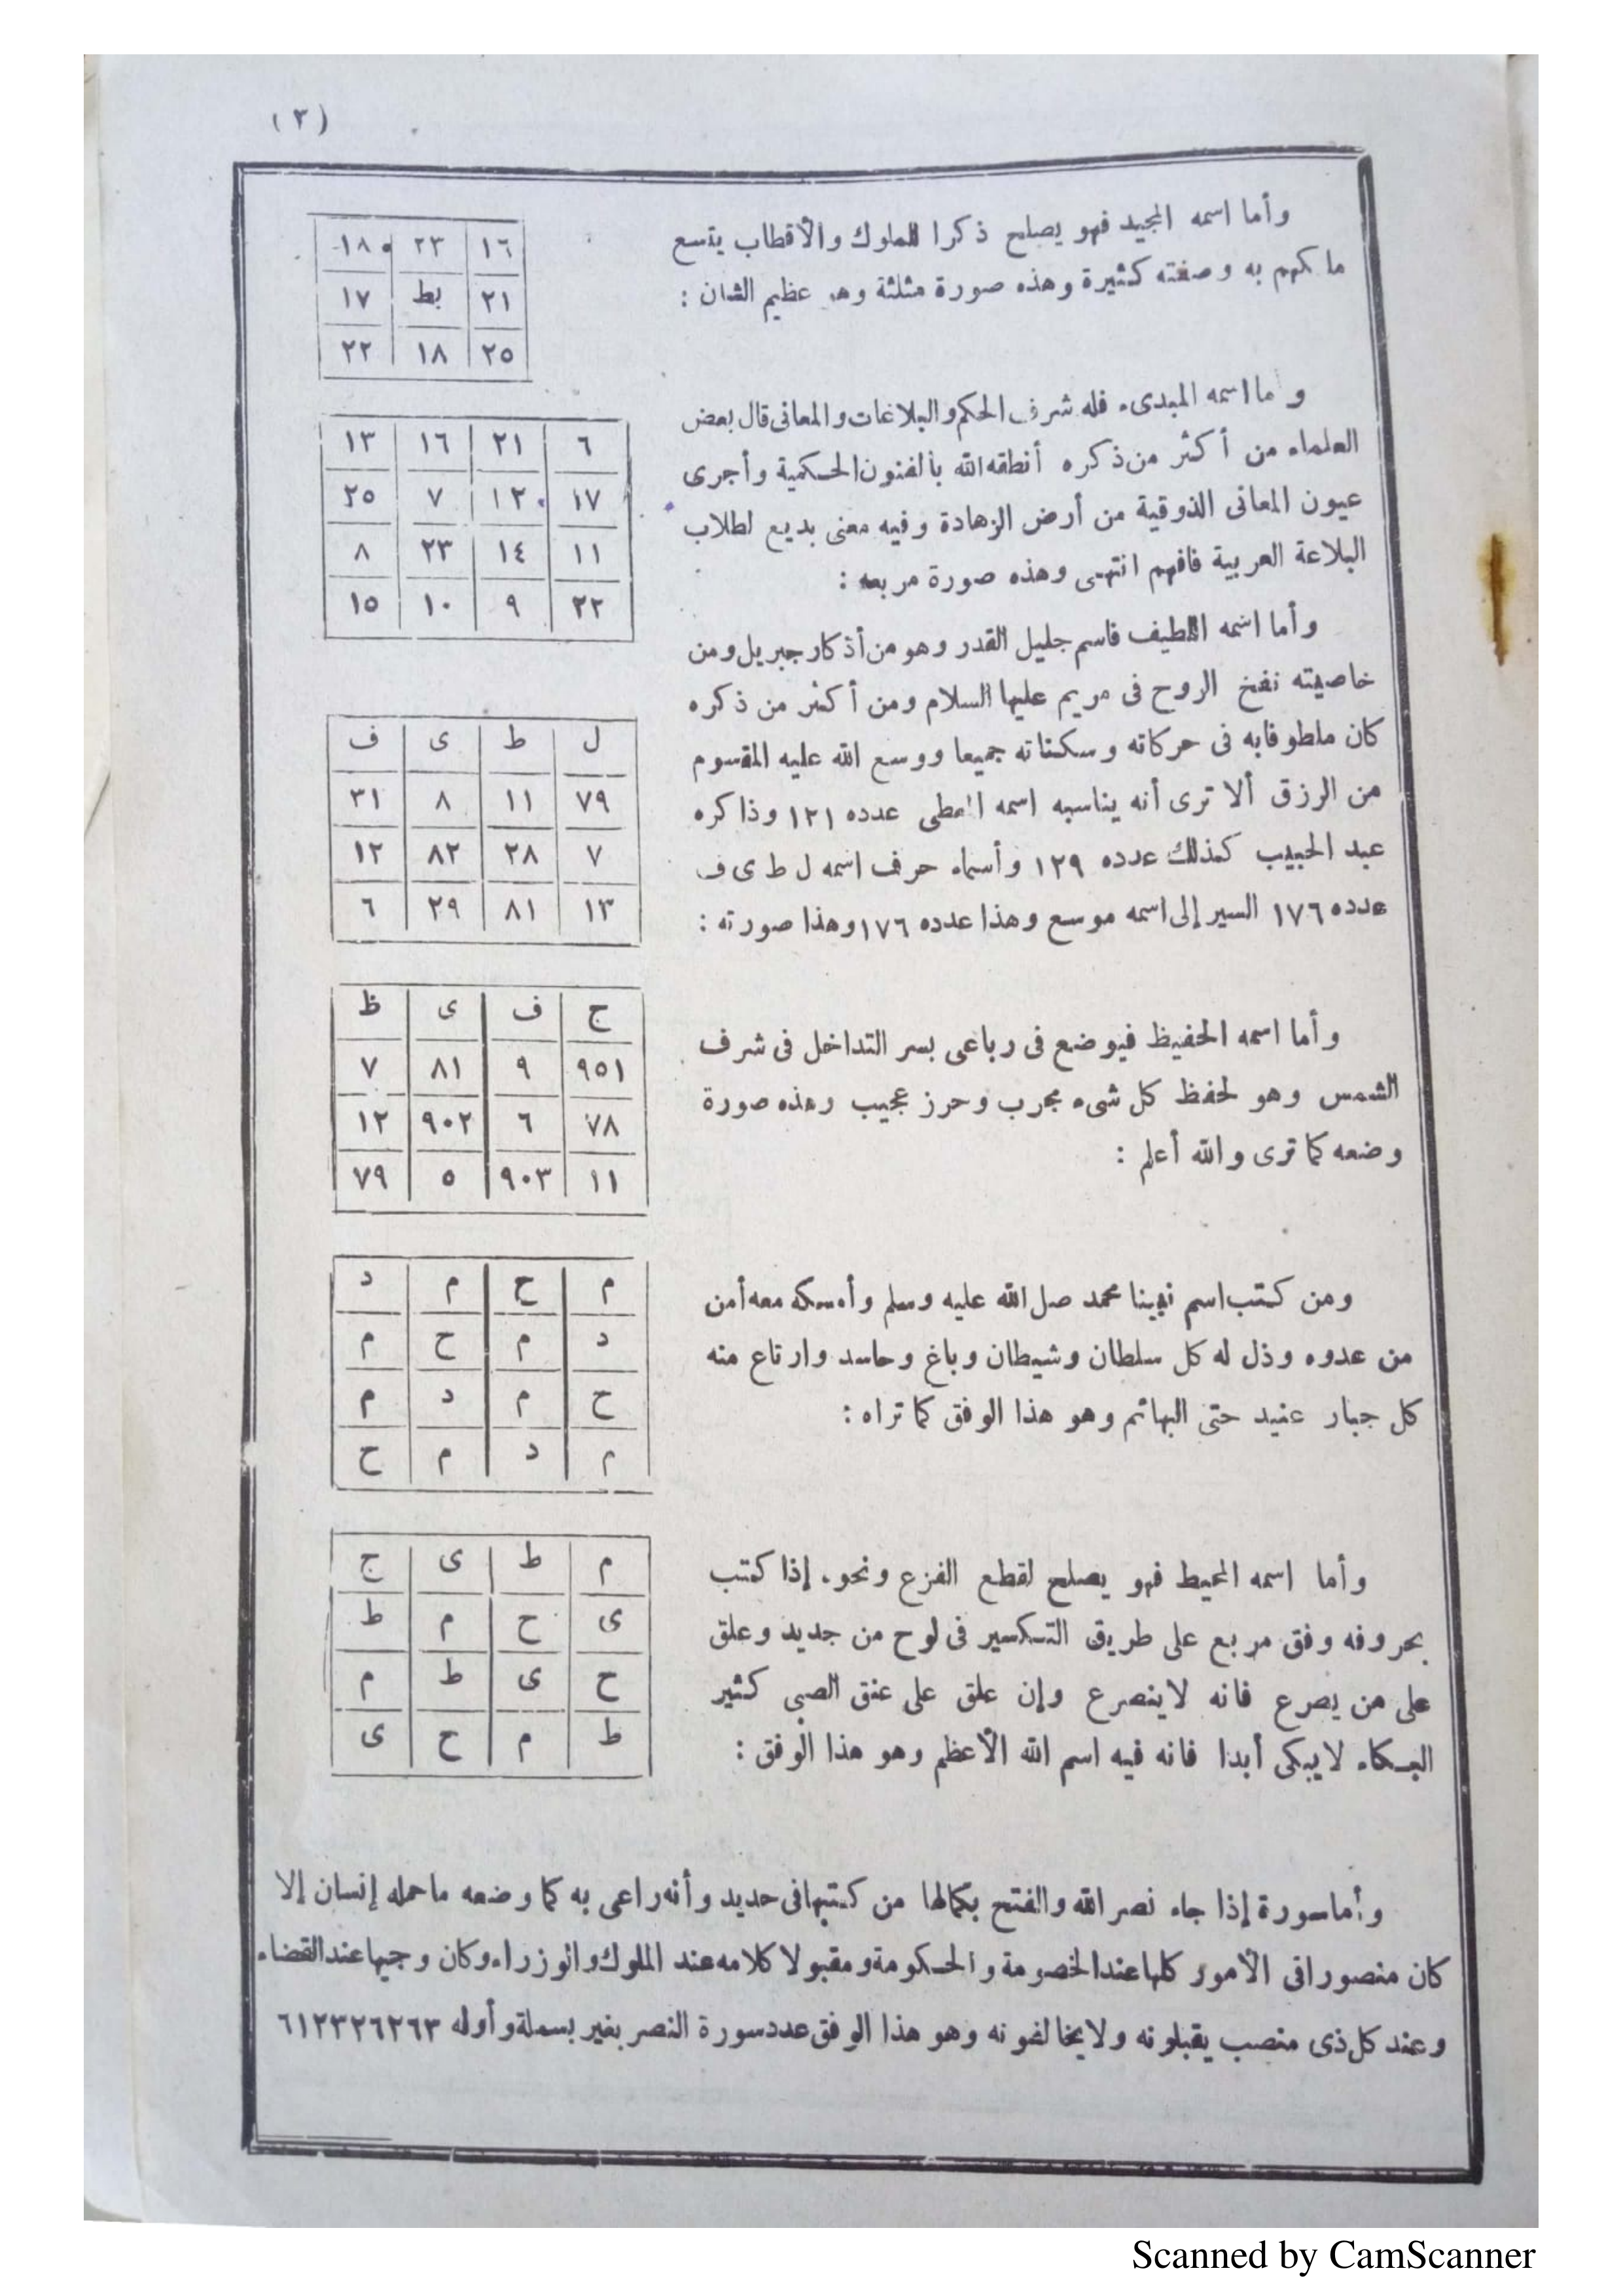 (٣)
وأما اسمه المجيد فهو يصلح ذكرا للملوك والأقطاب يتسع
ما كهم به وصفته كثيرة وهذه صورة مثلثة وهو عظيم الشان :
١٦ ٢٣ ١٨
٢١ بط ١٧
٢٥ ١٨ ٢٢
وأما اسمه المبدىء فله شرف الحكم والبلاغات والمعانى قال بعض
العلماء من أكثر من ذكره أنطقه الله بالفنون الحكمية وأجرى
عيون المعانى الذوقية من أرض الزهادة وفيه معنى بديع لطلاب
البلاعة العربية فافهم انتهى وهذه صورة مربعه :
٦ ٢١ ١٦ ١٣
١٧ ١٢ ٧ ٢٥
١١ ١٤ ٢٣ ٨
٢٢ ٩ ١٠ ١٥
وأما اسمه اللطيف فاسم جليل القدر وهو من أذكار جبريل ومن
خاصيته نفخ الروح فى مريم عليها السلام ومن أكثر من ذكره
كان ملطوفابه فى حركاته وسكناته جميعا ووسع الله عليه المقسوم
من الرزق ألا ترى أنه يناسبه اسمه المعطى عدده ١٢١ وذاكره
عبد الحبيب كذلك عدده ١٢٩ وأسماء حرف اسمه ل ط ى ف
عدده ١٧٦ السير إلى اسمه موسع وهذا عدده ١٧٦ وهذا صورته :
ل ط ى ف
٧٩ ١١ ٨ ٣١
٧ ٢٨ ٨٢ ١٢
١٣ ٨١ ٢٩ ٦
وأما اسمه الحفيظ فيوضع فى رباعى بسر التداخل فى شرف
الشمس وهو لحفظ كل شىء مجرب وحرز عجيب وهذه صورة
وضعه كما ترى والله أعلم :
ح ف ى ظ
٩٥١ ٩ ٨١ ٧
٧٨ ٦ ٩٠٢ ١٢
١١ ٩٠٣ ٥ ٧٩
ومن كتب اسم نبينا محمد صل الله عليه وسلم وأمسكه معه أمن
من عدوه وذل له كل سلطان وشيطان وباغ وحاسد وارتاع منه
كل جبار عنيد حتى البهائم وهو هذا الوفق كما تراه :
م ح م د
د م ح م
ح م د م
م د م ح
وأما اسمه المحيط فهو يصلح لقطع الفزع ونحوه إذا كتب
بحروفه وفق مربع على طريق التكسير فى لوح من جديد وعلق
على من يصرع فانه لاينصرع وإن علق على عنق الصبى كثير
البكاء لايبكى أبدا فانه فيه اسم الله الأعظم وهو هذا الوفق :
م ط ى ح
ى ح م ط
ح ى ط م
ط م ح ى
وأما سورة إذا جاء نصر الله والفتح بكمالها من كتبها فى حديد وأنه راعى به كما وضعه ماحمله إنسان إلا
كان منصورا فى الأمور كلها عند الخصومة والحكومة ومقبولا كلامه عند الملوك والوزراء وكان وجيها عند القضاء
وعند كل ذى منصب يقبلونه ولا يخالفونه وهو هذا الوفق عدد سورة النصر بغير بسملة وأوله ٦١٢٣٢٦٢٦٣
Scanned by CamScanner